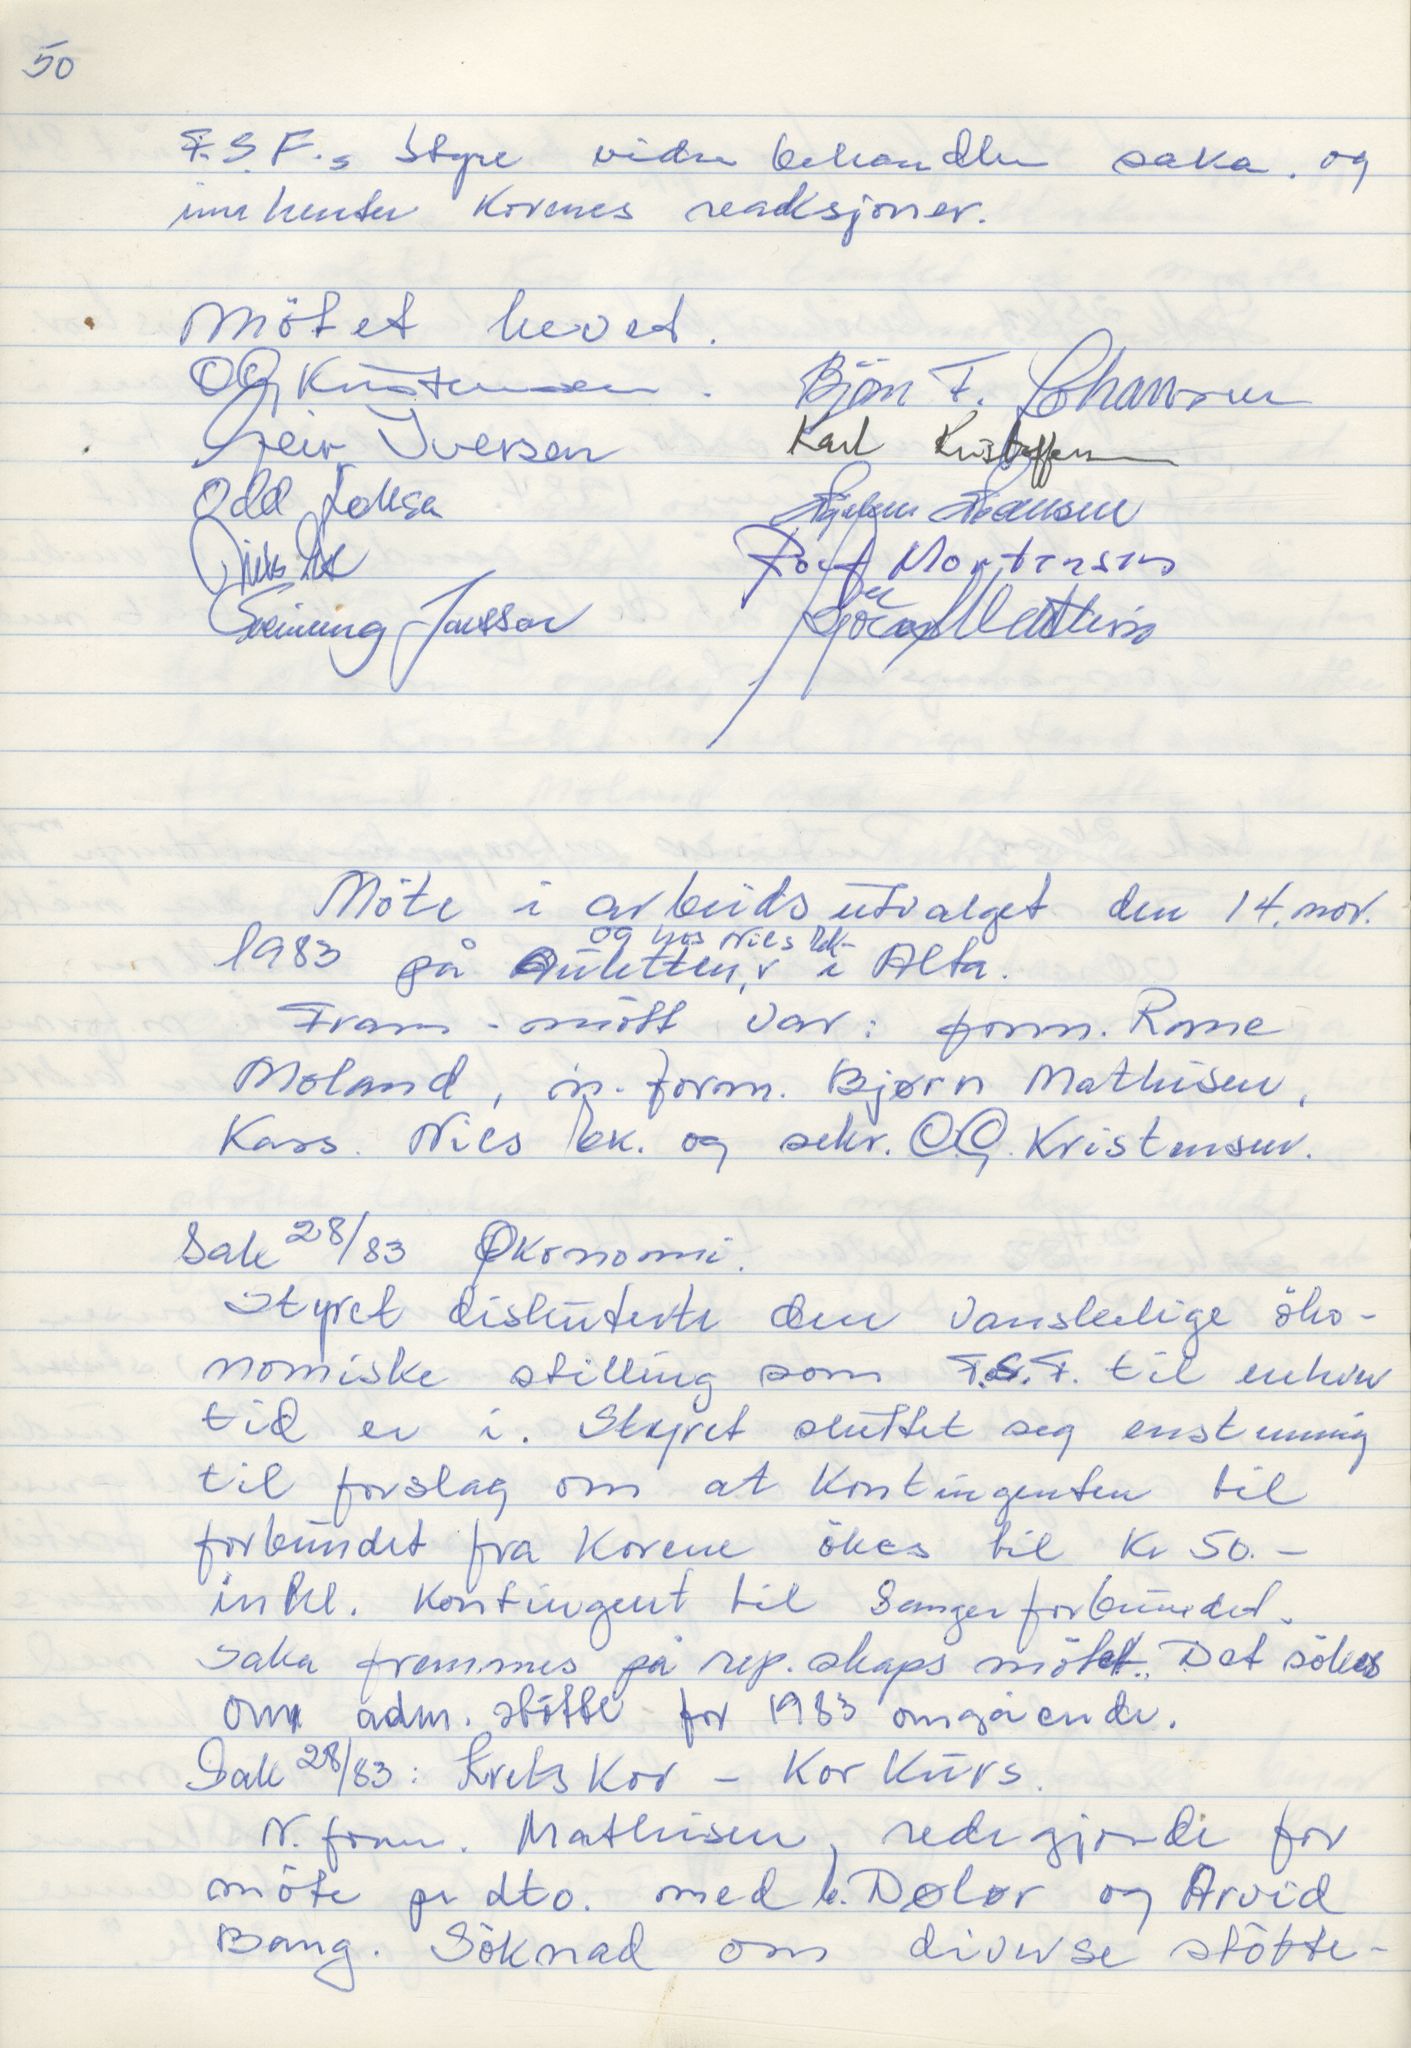 50
F.S.F.s Styre vidre behandler saka. og
innhenter Korenes reaksjoner.
Mötet hevet.
OG Kristensen. Björn F. Johansen
Geir Iversen Karl Kristoffersen
Odd Hansen
Nils Rolf Mortensen
Jansson
Möte i arbeidsutvalget den 14. nov.
og hos Nils
1983 på i Alta.
Fram-mött var: form. Rone
Moland, n. form. Bjørn Mathisen,
Kass. Nils Ek. og sekr. O.G. Kristensen.
Sak 28/83 Økonomi.
Styret diskuterte den vanskelige öko-
nomiske stilling som F.S.F. til enhver
tid er i. Styret sluttet seg enstemmig
til forslag om at Kontingenten til
forbundet fra Korene ökes til Kr 50.-
inkl. Kontingent til Sangerforbundet.
Saka fremmes på rep.skaps mötet. Det sökes
om adm. stötte for 1983 omgående.
Sak 28/83: Kretskor - Kor Kurs.
N. form. Mathisen, redegjorde for
möte pr dto. med k. Dølør og Arvid
Bang. Söknad om diverse stötte-